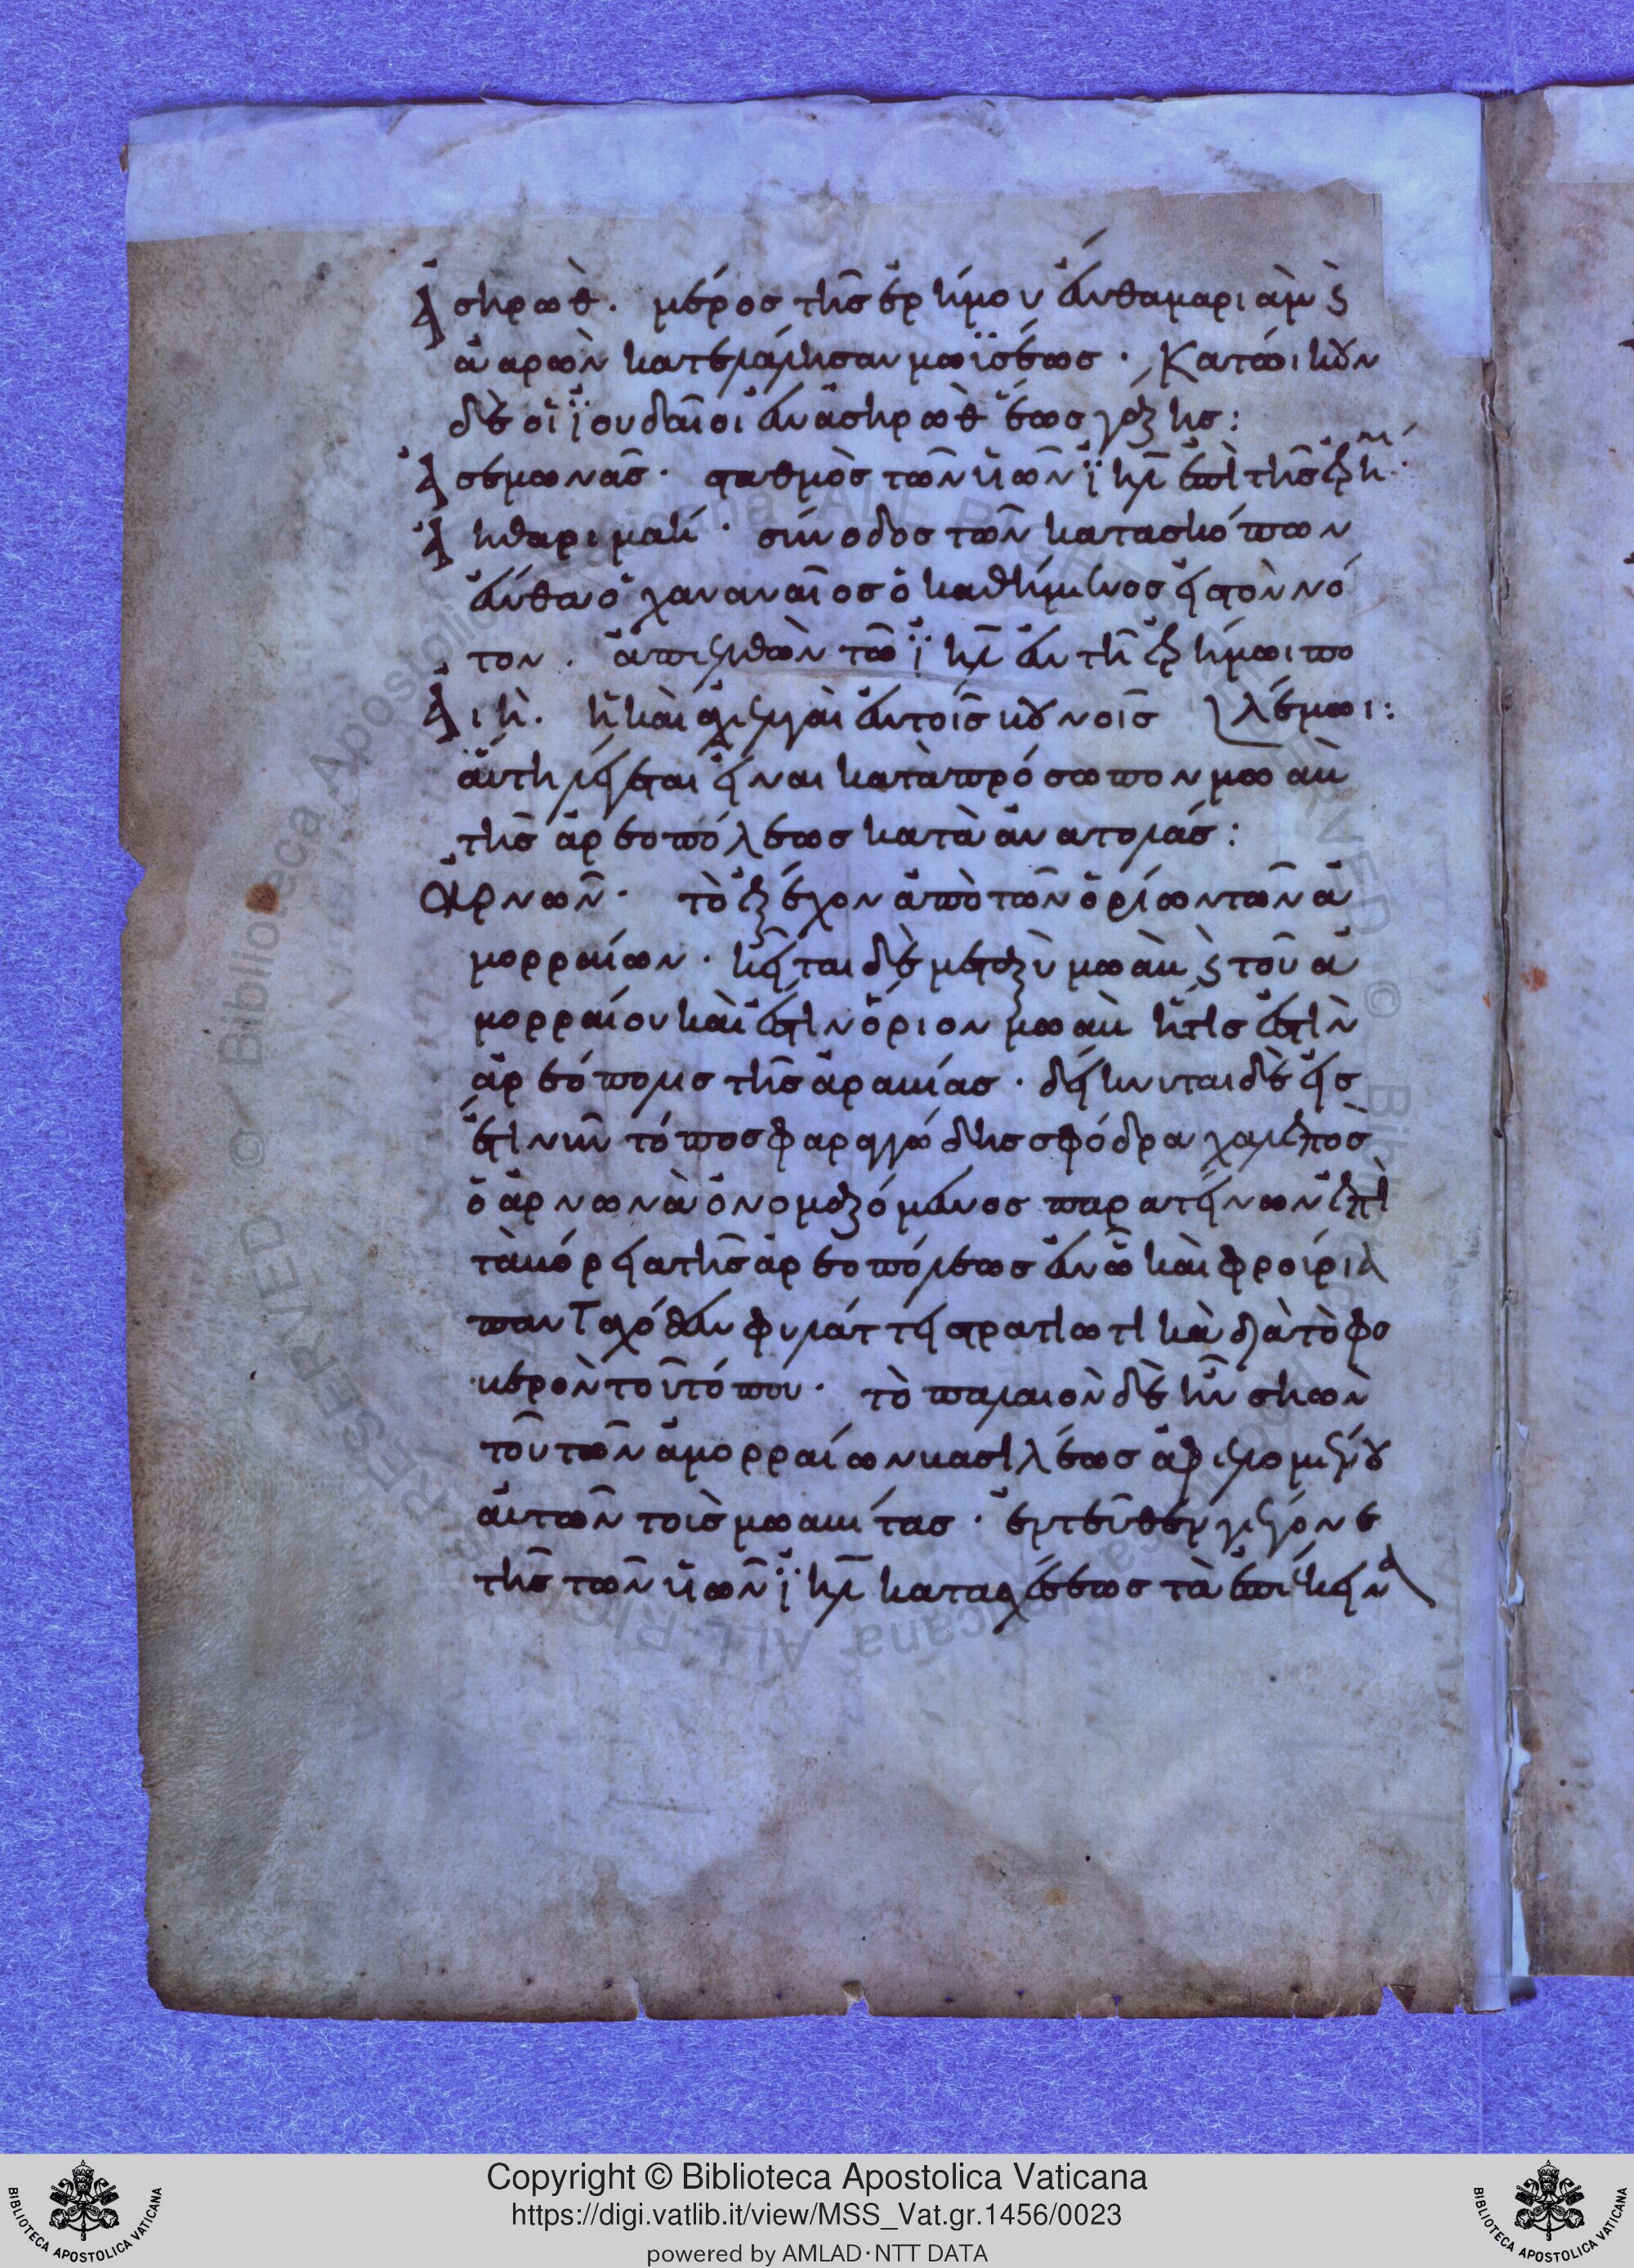 Ἀσηρὼθ. μέρος τῆς ἐρήμου ἔνθα μαριὰμ ϛ
ἀαρὼν κατελάλησαν μωϊσέως. Κατώικουν
δὲ οἱ ϊουδαῖοι ἐν ἀσηρὼθ ἕως γάζης:
Ἀσεμωνᾶς. σταθμὸς τῶν ὑιῶν ϊηλ ἐπὶ τῆς ἐρήμ
Ἀθαρὶμ ακή. σύνοδος τῶν κατασκόπων
ἔνθα ὁ χαναναῖος ὁ καθήμενος εἰς τὸν νό
τον. ἀπελθὼν τῶ ϊηλ ἐν τῆ ἐρήμωι πο
Ἀιή. ἡ καὶ ἀχελγαὶ ἐν τοῖς βουνοῖς λέμωι:
αὕτη λέγεται εἶναι κατὰ πρόσωπον μωαβ
τῆς ἀρεοπόλεως κατὰ ἀνατολάς:
Ἀρνῶν. τὸ ἐξέχον ἀπὸ τῶν ὁρίων τῶν ἀ
μορραίων. κεῖται δὲ μεταξὺ μωὰβ ϛ τοῦ ἀ
μορραίου καὶ ἐστὶν ὅριον μωὰβ ἥτις ἐστὶν
ἀρεόπολις τῆς ἀραβίας. δείκνυται δὲ εἰς
ἔτι νῦν τόπος φαραγγώδης σφόδρα χαλεπὸς
ὁ ἀρνωνὰ ὀνομαζόμενος παρατείνων ἐπὶ
τὰ βόρεια τῆς ἀρεοπόλεως ἐν ὧ καὶ φρούρια
πανταχόθεν φυλάττει στρατιωτικὰ διὰ τὸ φο
βερὸν τοῦ τόπου. τὸ παλαιὸν δὲ ἦν σηὼν
τοῦ τῶν ἀμορραίων βασιλέως ἀφελομένου
αὐτῶν τοὺς μωαβίτας. ἐντεῦθεν γέγονε
τῆς τῶν ὑιῶν ϊηλ κατασχέσεως τὰ ἐπέκεινα
Copyright © Biblioteca Apostolica Vaticana
https://digi.vatlib.it/view/MSS_Vat.gr.1456/0023
powered by AMLAD·NTT DATA
BIBLIOTECA APOSTOLICA VATICANA
BIBLIOTECA APOSTOLICA VATICANA